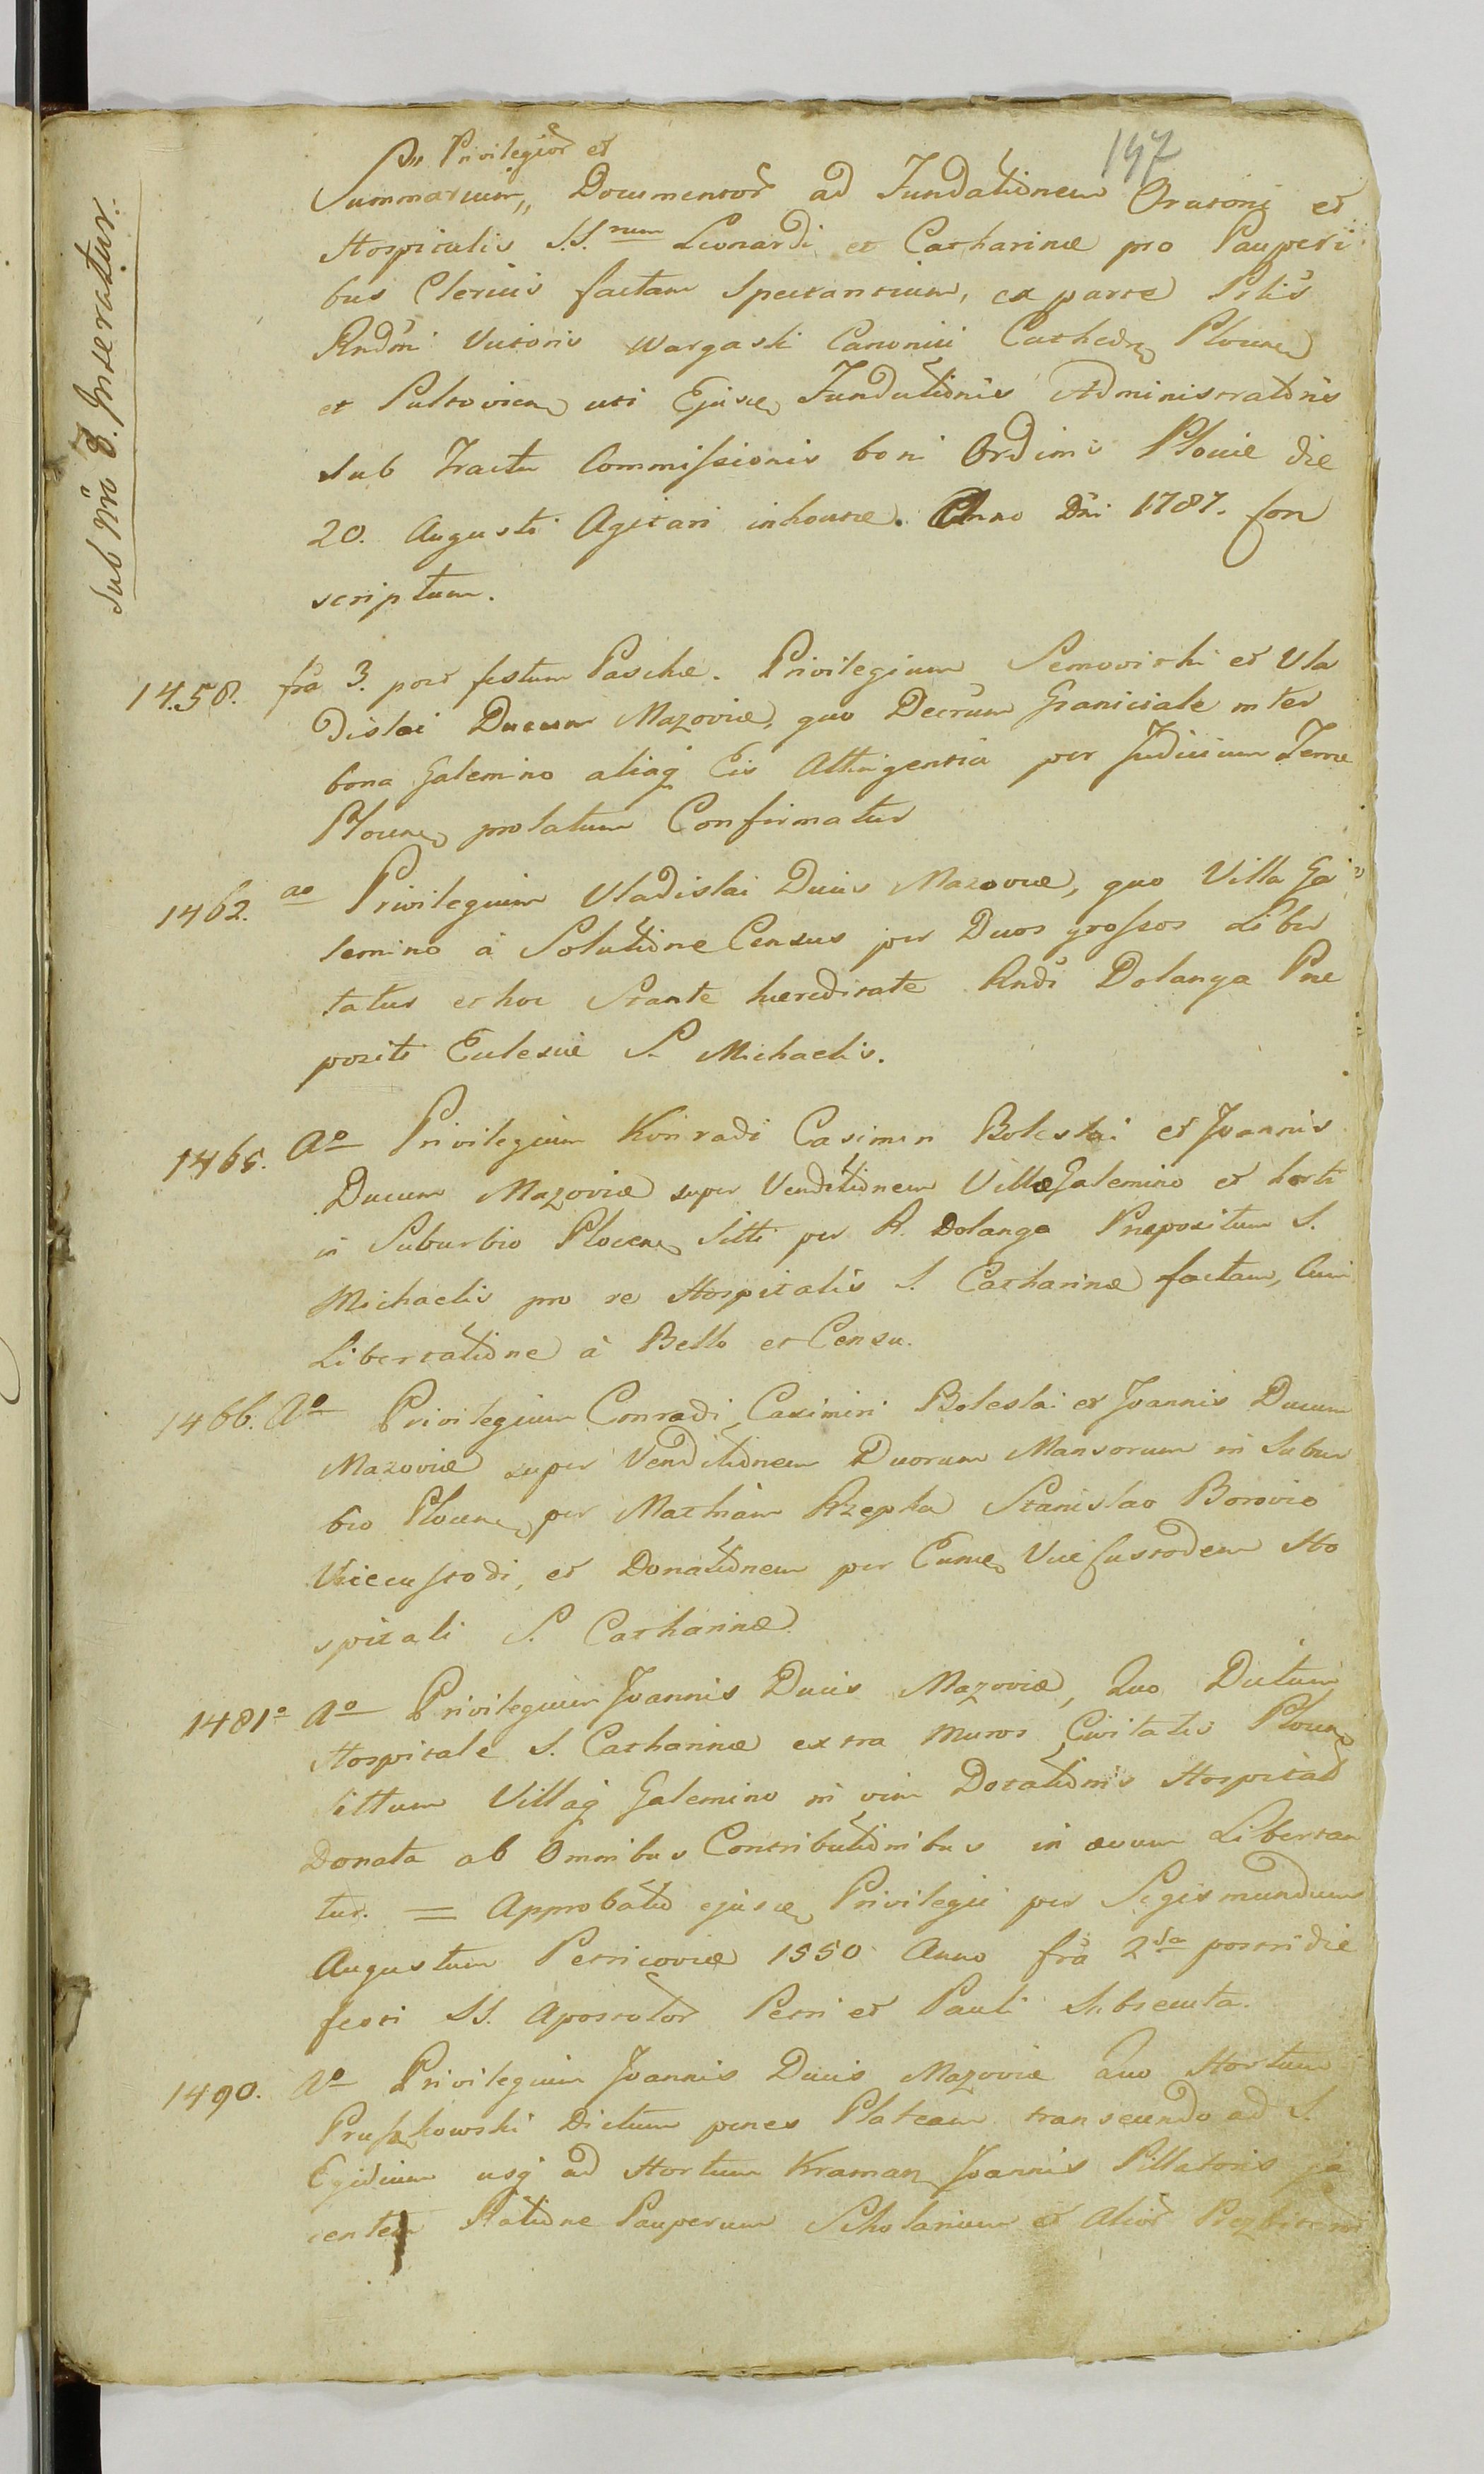 197
Sub Nro 8. Inseratur.
P,, Privilegior et
Summarium,, Documentor ad Fundationem Oratorii et
Hospitalis S.S. rum Leonardi et Catharinæ pro Pauperi
bus Clericis factam Spectantium, ex parte Prltis
Rndmi Victoris Wargaski Canonici Cathedr Plocen
et Pultovien uti Ejusd Fundationis Administratoris
sub Tractu Commissionis boni Ordinis Plociæ die
20. Augusti Agitari inhoatæ. Anno Dni 1787. Con
scriptum.
1458. fra 3. post festum Paschæ. Privilegium Semovithi et Vla
dislai Ducum Mazoviæ, quo Decrum Graniciale inter
bona Galemino aliaq Eis Attingentia per Judicium Terræ
Plocen prolatum Confirmatur
1462. ao Privilegium Vladislai Ducis Mazoviæ, quo Villa Ga
lemino à Solutione Census per Duos grossos Liber
tatur et hoc Stante hæreditate Rndi Dolanga Præ
positi Eclesiæ S. Michaelis.
1465. Ao Privilegium Konradi Casimiri Boleslai et Joannis
Ducum Mazoviæ super Venditionem Villæ Galemino et horti
in Suburbio Plocen Sitti per R. Dolanga Præpositum S.
Michaelis pro re Hospitalis S. Catharinæ factam, Cum
Libertatione à Bello et Censu.
1466. Ao Privilegium Conradi Casimiri Boleslai et Joannis Ducum
Mazoviæ super Venditionem Duorum Mansorum in Subur
bio Plocen per Mathiam Rzepka Stanislao Borovio
Vicecustodi, et Donationem per Eumd Vice Custodem Ho
spitali S. Catharinæ
1481o Ao Privilegium Joannis Ducis Mazoviæ, Quo Dictum
Hospitale S. Catharinæ extra muros Civitatis Plocen
sittum Villaq Galemino in vim Dotationis Hospitali
Donata ab Omnibus Contributionibus in ævum Libertan
tur. = Approbatio ejusd Privilegii per Sigismundum
Augustum Petricoviæ 1550 Anno fra 2da postridie
festi SS. Apostolor Petri et Pauli Subsecuta.
1490. Ao Privilegium Joannis Ducis Mazoviæ Quo Hortum
Pruszkowski Dictum penes Plateam transeundo ad S.
Egidium usq ad Hortum Kraman Joannis Pillatoris ja
centem Ratione Pauperum Scholarium et Alior Prezbiteror